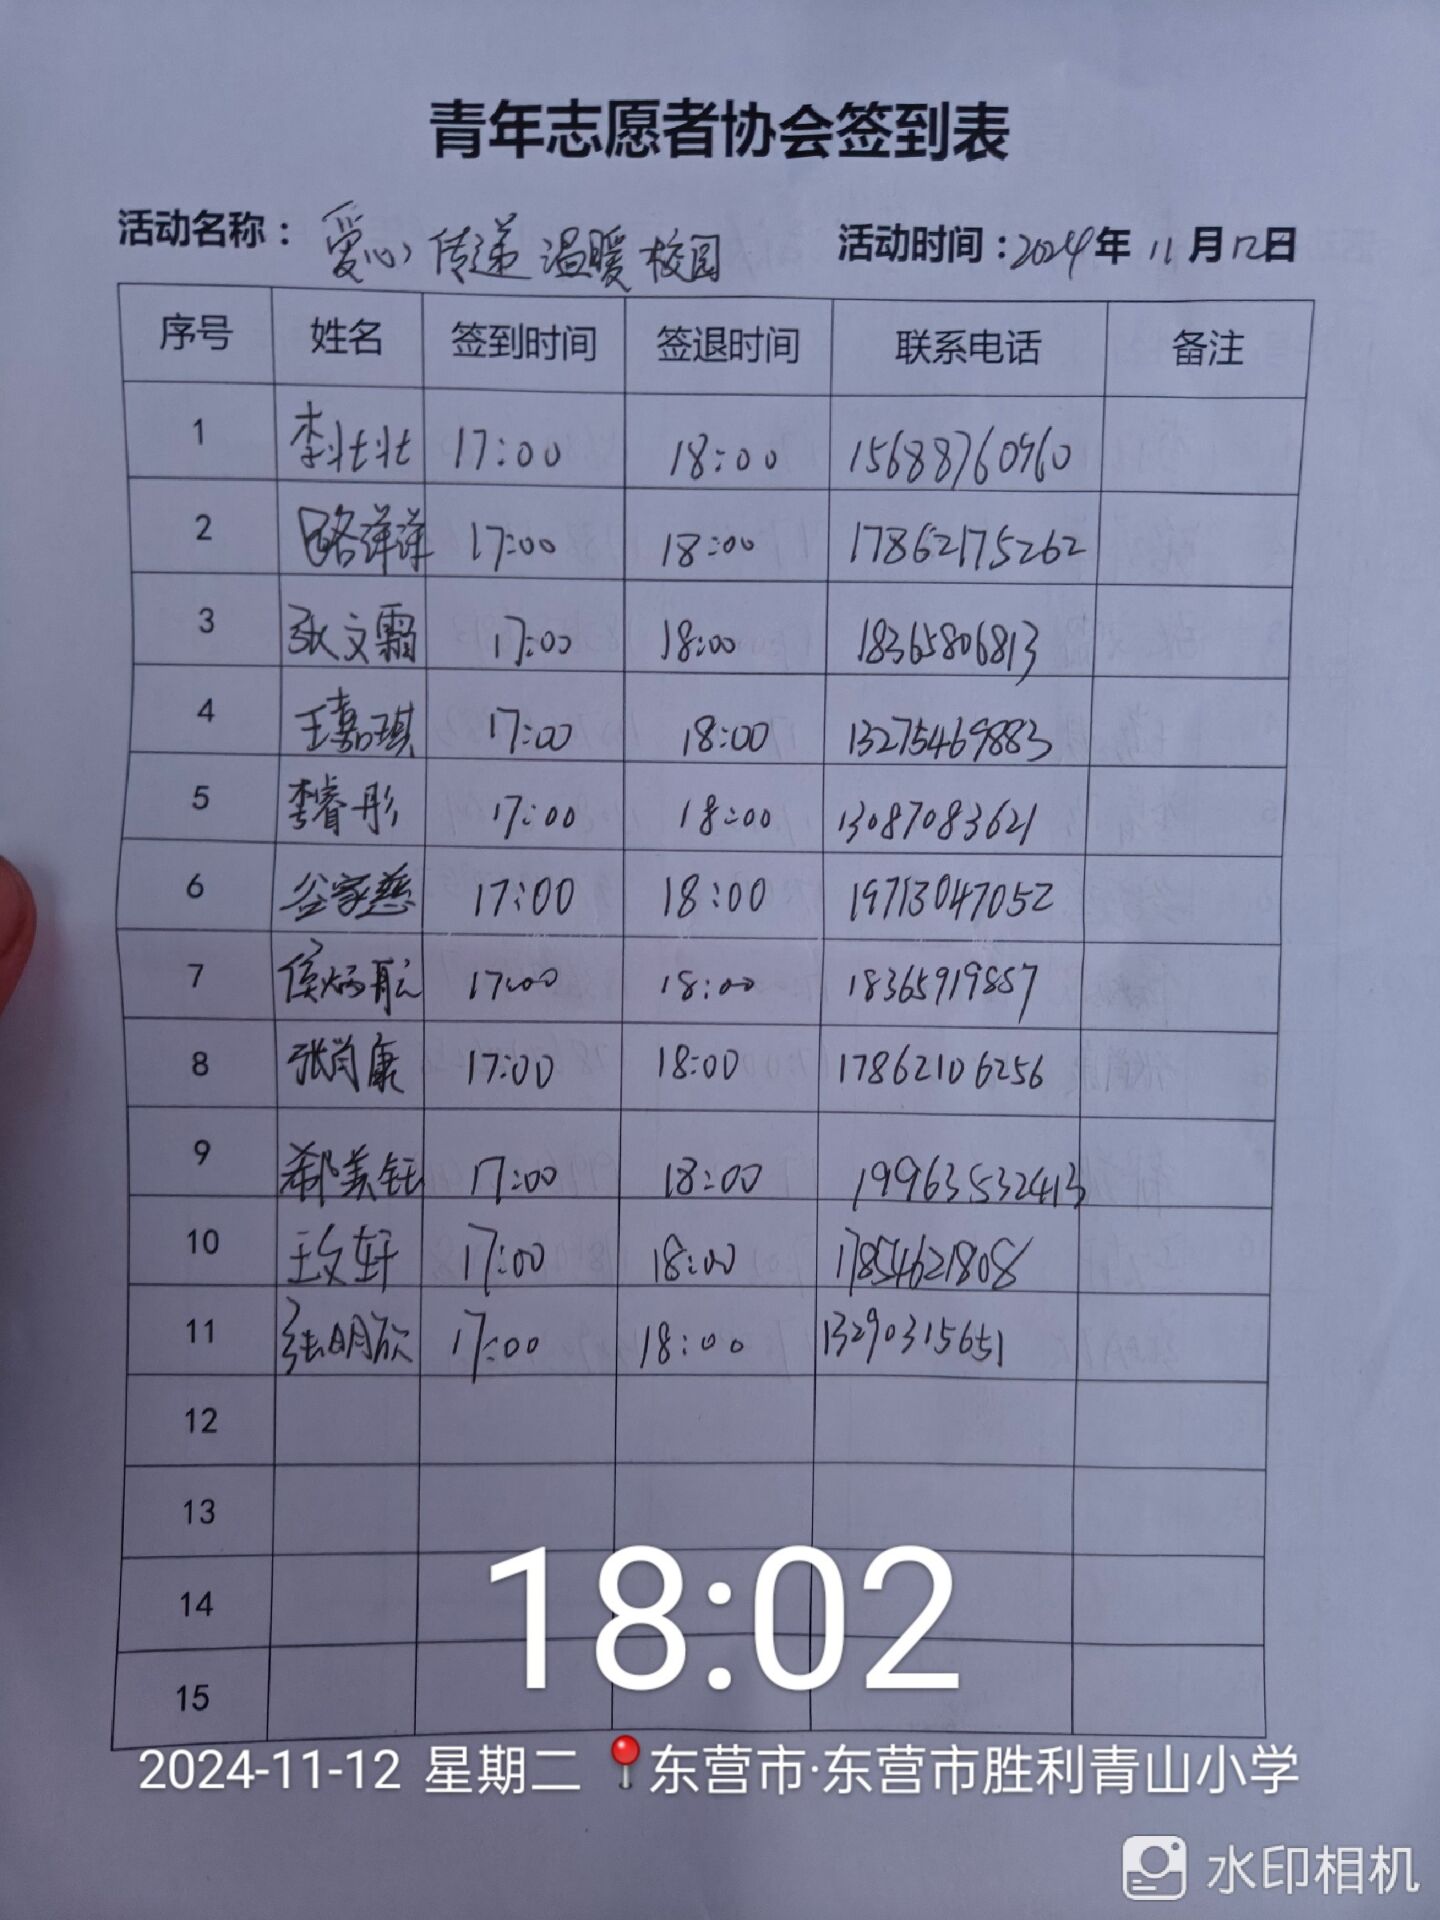 青年志愿者协会签到表
活动名称： 爱心传递温暖校园 活动时间：2024年 11月12日
序号 姓名 签到时间 签退时间 联系电话 备注
1 李壮壮 17:00 18:00 15688760960
2 路洋洋 17:00 18:00 17862175262
3 张文霜 17:00 18:00 18365806813
4 王嘉琪 17:00 18:00 13275469883
5 李睿彤 17:00 18:00 13087083621
6 谷家慈 17:00 18:00 19713047052
7 侯炳 17:00 18:00 18365919857
8 张肖康 17:00 18:00 17862106256
9 郗美钰 17:00 18:00 19963532413
10 王文轩 17:00 18:00 17854621808
11 张明欣 17:00 18:00 13290315651
12
13
14
15
18:02
2024-11-12 星期二 东营市·东营市胜利青山小学
水印相机